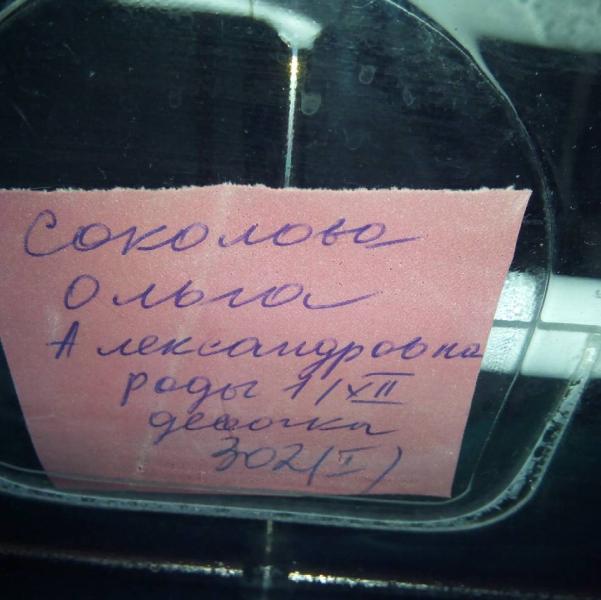 Соколова
Ольга
Александровна
роды 1/XII
девочка
302(I)